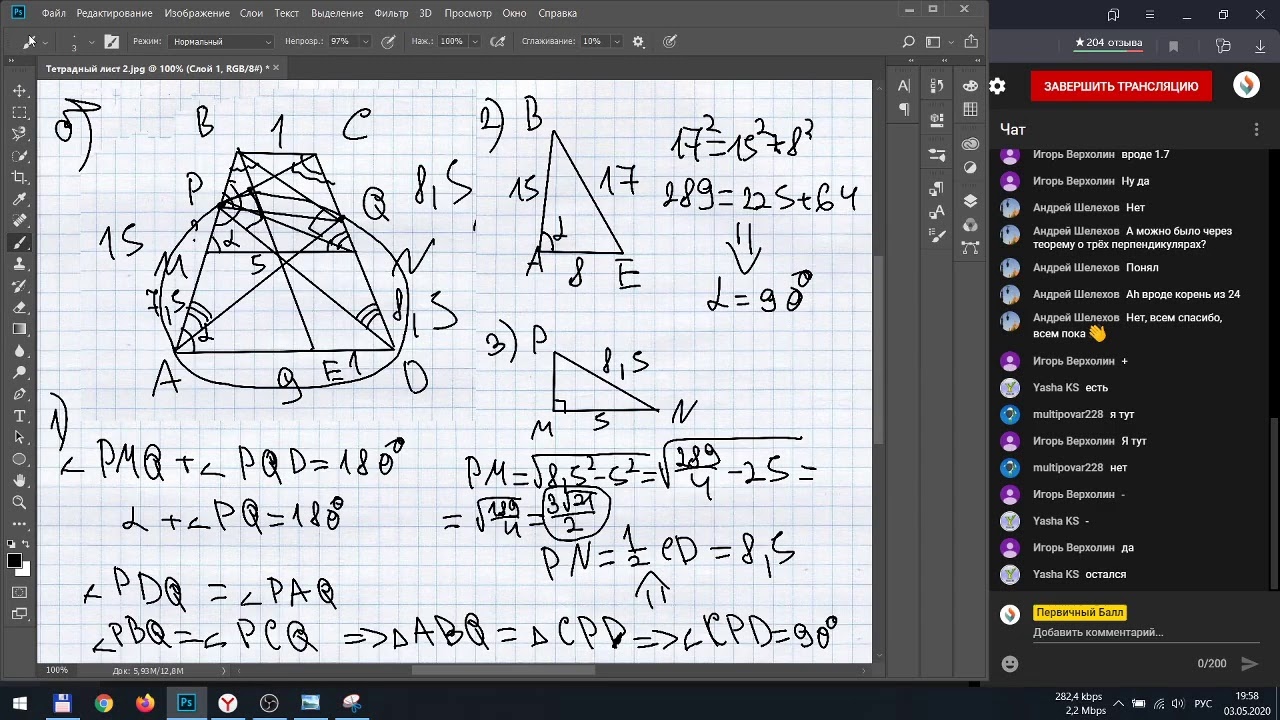 Файл Редактирование Изображение Слои Текст Выделение Фильтр 3D Просмотр Окно Справка
3 Режим: Нормальный Непрозр.: 97% Наж.: 100% Сглаживание: 10%
Тетрадный лист 2.jpg @ 100% (Слой 1, RGB/8#) *
б)
B 1 C
P Q 8,5
15 α
M 5 N
7,5 8,5
α
A 9 E 1 D
1)
∠PMQ + ∠PQD = 180°
α + ∠PQ = 180°
∠PDQ = ∠PAQ
∠PBQ = ∠PCQ => △ABQ = △CPD => ∠CPD = 90°
2) B
15 17
α
A 8 E
17² = 15² + 8²
289 = 225 + 64
α = 90°
3) P
8,5
M 5 N
PM = √8,5² - 5² = √289/4 - 25 =
= √189/4 = 3√21/2
PN = 1/2 CD = 8,5
100% Док: 5,93M/12,8M
204 отзыва
ЗАВЕРШИТЬ ТРАНСЛЯЦИЮ
Чат
Игорь Верхолин вроде 1.7
Игорь Верхолин Ну да
Андрей Шелехов Нет
Андрей Шелехов А можно было через
теорему о трёх перпендикулярах?
Андрей Шелехов Понял
Андрей Шелехов Ah вроде корень из 24
Андрей Шелехов Нет, всем спасибо,
всем пока👋
Игорь Верхолин +
Yasha KS есть
multipovar228 я тут
Игорь Верхолин Я тут
multipovar228 нет
Игорь Верхолин -
Yasha KS -
Игорь Верхолин да
Yasha KS остался
Первичный Балл
Добавить комментарий...
0/200
282,4 kbps
2,2 Mbps
РУС
19:58
03.05.2020